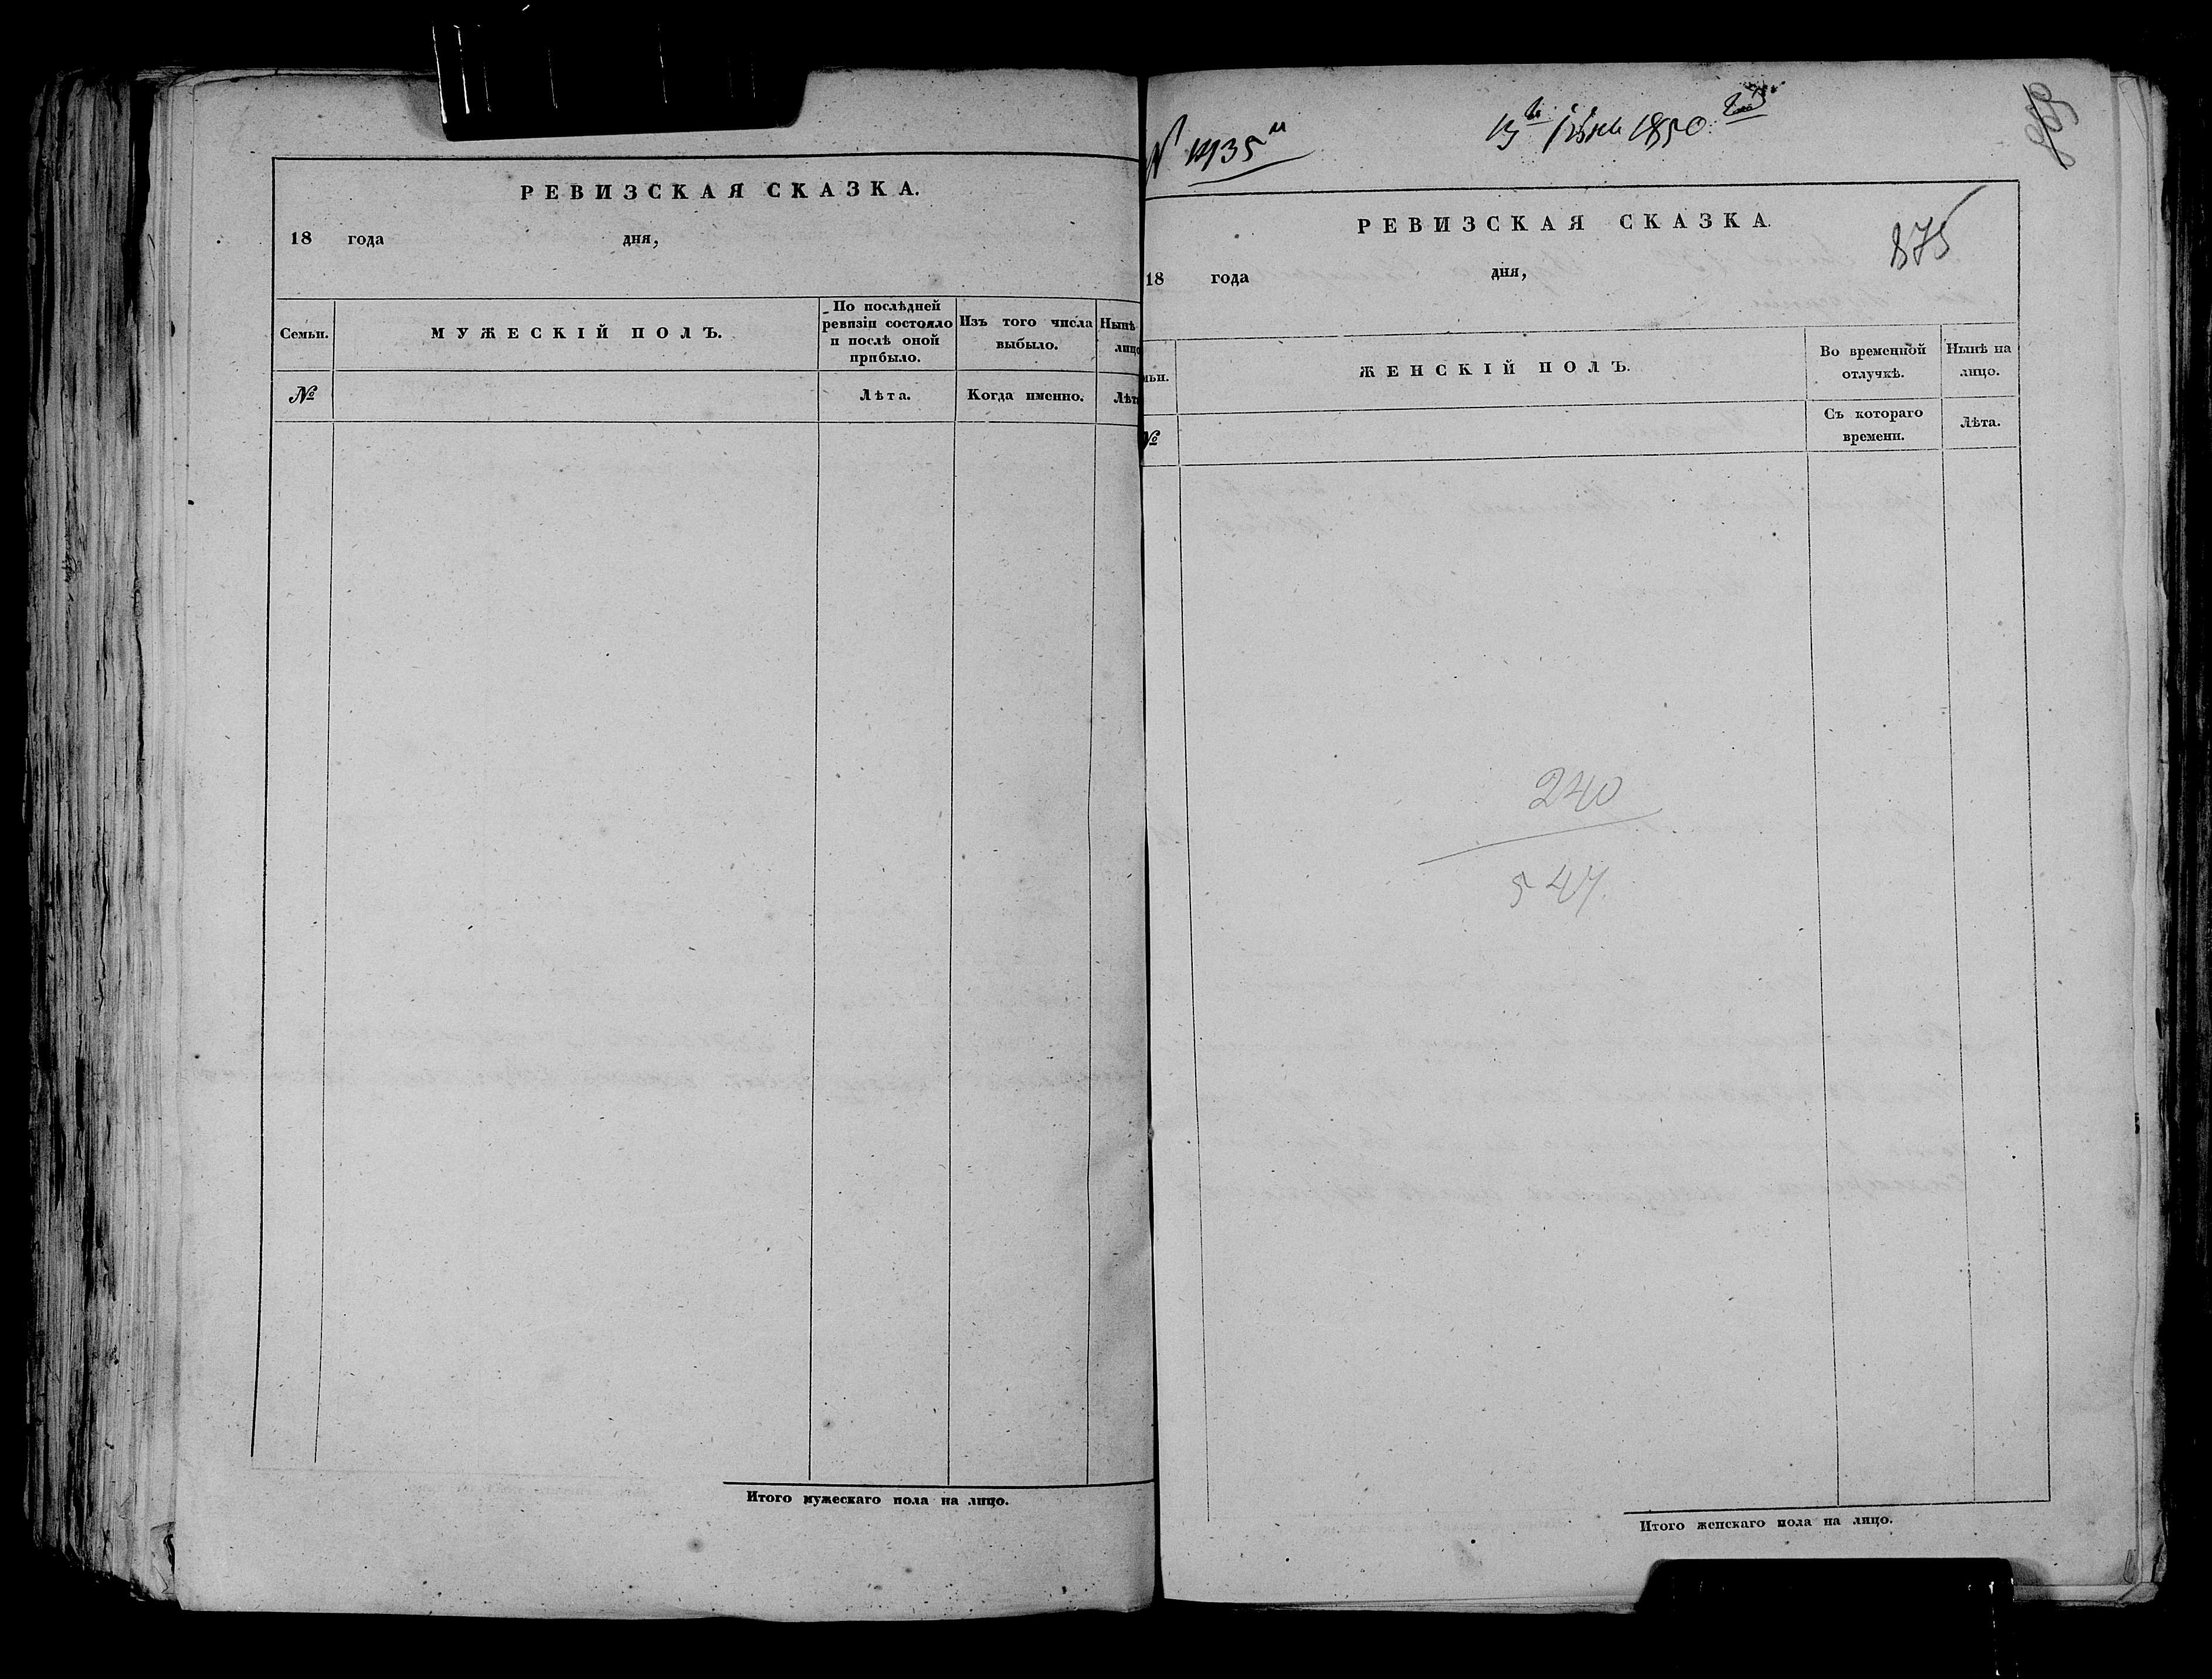 РЕВИЗСКАЯ СКАЗКА.
18 года дня,
Семьи. МУЖЕСКІЙ ПОЛЪ. По послѣдней ревизіи состояло и послѣ оной прибыло. Изъ того числа выбыло. Нынѣ лицо
№ Лѣта. Когда именно. Лѣт
Итого мужескаго пола на лицо.
13 1850
РЕВИЗСКАЯ СКАЗКА.
875
18 года дня,
мьи. ЖЕНСКІЙ ПОЛЪ. Во временной отлучкѣ. Нынѣ на лицо.
№ Съ котораго времени. Лѣта.
240
547
Итого женскаго пола на лицо.